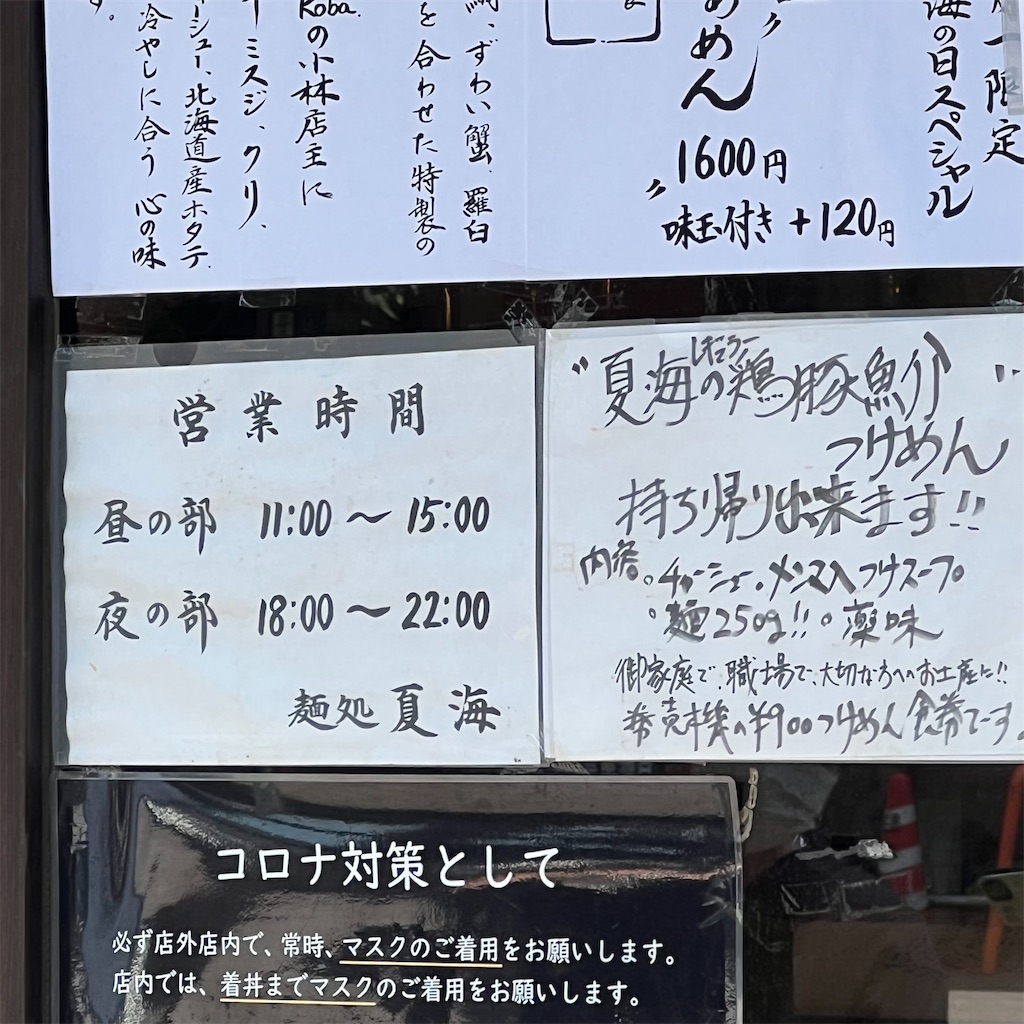 限定
海の日スペシャル
めん
1600円
味玉付き +120円
ずわい蟹、羅臼
を合わせた特製の
Roba.
の小林店主に
ーミスジ、クリ、
ーシュー、北海道産ホタテ
冷やしに合う 心の味
す。
営業時間
昼の部 11:00〜15:00
夜の部 18:00〜22:00
麺処 夏海
レギュラー
"夏海の鶏豚魚介"
つけめん
持ち帰り出来ます!!
内容。チャーシュー。メンマ入つけスープ。
。麺250g!!。薬味
御家庭で、職場で、大切な方へのお土産に!!
券売機の¥900つけめん食券でーす。
コロナ対策として
必ず店外店内で、常時、マスクのご着用をお願いします。
店内では、着丼までマスクのご着用をお願いします。